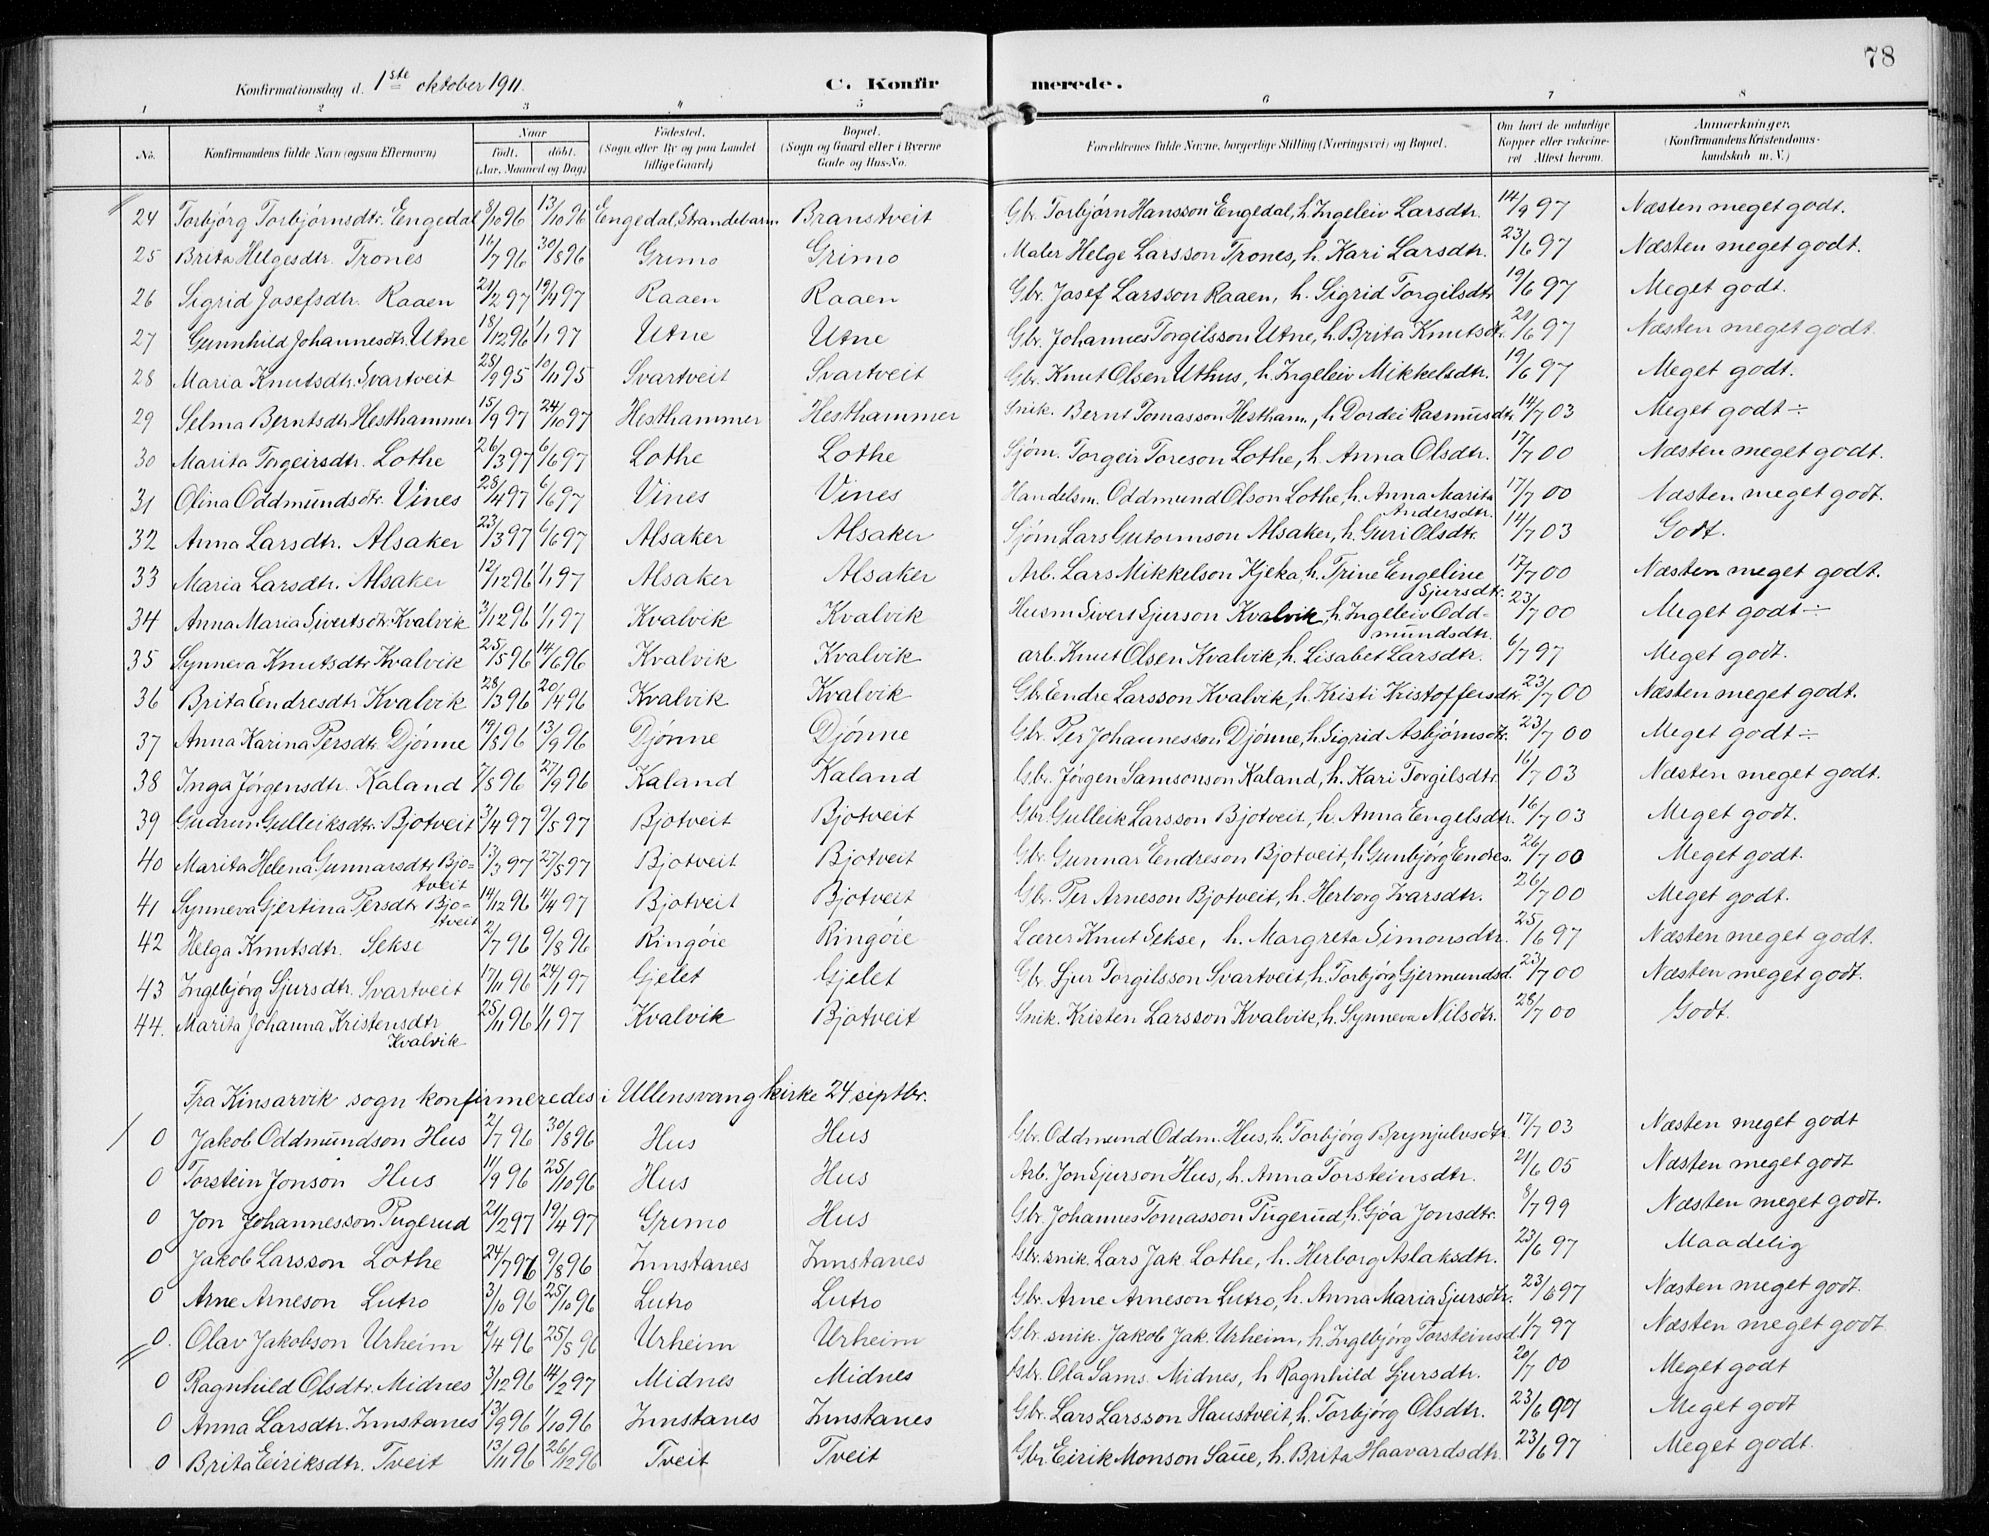 78
Konfirmationsdag d. 1ste oktober 1911. C. Konfirmerede.
1 2 3 4 5 6 7 8
No. Konfirmandens fulde Navn (ogsaa Efternavn) Naar født. døbt. (Aar, Maaned og Dag) Fødested. (Sogn eller By og paa Landet tillige Gaard) Bopæl. (Sogn og Gaard eller i Byerne Gade og Hus-No. Forældrenes fulde Navne, borgerlige Stilling (Næringsvei) og Bopæl. Om havt de naturlige Kopper eller vakcineret Attest herom. Anmerkninger. (Konfirmandens Kristendomskundskab m. V.)
24 Torbjørg Torbjørnsdtr. Engedal 8/10 96 13/10 96 Engedal, Strandebarm. Branstveit Gbr. Torbjørn Hansson Engedal, h. Ingeleiv Larsdtr. 14/9 97 Næsten meget godt.
25 Brita Helgesdtr. Trones 16/7 96 30/8 96 Grimo Grimo Maler Helge Larsson Trones, h. Kari Larsdtr. 23/6 97 Næsten meget godt.
26 Sigrid Josefsdtr. Raaen 21/2 97 19/4 97 Raaen Raaen Gbr. Josef Larsson Raaen, h. Sigrid Torgilsdtr 19/6 97 Meget godt.
27 Gunnhild Johannesdtr. Utne 18/12 96 1/1 97 Utne Utne Gbr. Johannes Torgilsson Utne, h. Brita Knutsdtr. 21/6 97 Næsten meget godt.
28 Maria Knutsdtr. Svartveit 28/9 95 10/11 95 Svartveit Svartveit Gbr. Knut Olsen Uthus, h. Ingeleiv Mikkelsdtr. 19/6 97 Meget godt.
29 Selma Berntsdtr Hesthammer 15/9 97 24/10 97 Hesthammer Hesthammer Snik. Bernt Tomasson Hestham., h. Dordei Rasmusdtr 14/7 03 Meget godt ÷
30 Marita Torgeirsdtr. Lothe 26/3 97 6/6 97 Lothe Lothe Sjøm. Torgeir Toreson Lothe, h. Anna Olsdtr. 17/7 00 Næsten meget godt.
31 Olina Oddmundsdtr. Vines 28/4 97 6/6 97 Vines Vines Handelsm. Oddmund Olson Lothe, h. Anna Marita Andersdtr. 17/7 00 Næsten meget godt.
32 Anna Larsdtr. Alsaker 23/3 97 6/6 97 Alsaker Alsaker Sjøm Lars Gutormson Alsaker, h. Guri Olsdtr. 14/7 03 Godt.
33 Maria Larsdtr. Alsaker 12/12 96 1/1 97 Alsaker Alsaker Arb. Lars Mikkelson Kjeka, h. Trine Engeline Sjursdtr. 17/7 00 Næsten meget godt.
34 Anna Maria Sivertsdtr. Kvalvik 3/12 96 1/1 97 Kvalvik Kvalvik Husm Sivert Sjurson Kvalvik, h. Ingeleiv Oddmundsdtr. 23/7 00 Meget godt ÷
35 Synneva Knutsdtr Kvalvik 25/5 96 14/6 96 Kvalvik Kvalvik arb. Knut Olsen Kvalvik, h. Lisabet Larsdtr. 6/7 97 Meget godt.
36 Brita Endresdtr Kvalvik 28/3 96 20/4 96 Kvalvik Kvalvik Gbr Endre Larsson Kvalvik, h. Kristi Kristoffersdtr. 23/7 00 Næsten meget godt.
37 Anna Karina Persdtr. Djønne 19/8 96 13/9 96 Djønne Djønne Gbr. Per Johannesson Djønne, h. Sigrid Asbjørnsdtr. 23/7 00 Meget godt ÷
38 Inga Jørgensdtr. Kaland 7/8 96 27/9 96 Kaland Kaland Gbr. Jørgen Samsonson Kaland, h. Kari Torgilsdtr 16/7 03 Næsten meget godt.
39 Gudrun Gulleiksdtr. Bjotveit 3/4 97 9/5 97 Bjotveit Bjotveit Gbr. Gulleik Larsson Bjotveit, h. Anna Engelsdtr. 16/7 03 Meget godt.
40 Marita Helena Gunnarsdtr Bjotveit 13/3 97 27/5 97 Bjotveit Bjotveit Gbr. Gunnar Endreson Bjotveit, h Gunbjørg Endres. 26/7 00 Meget godt.
41 Synneva Gjertina Persdtr Bjotveit 14/12 96 4/4 97 Bjotveit Bjotveit Gbr. Per Arneson Bjotveit, h. Herborg Ivarsdtr. 26/7 00 Meget godt.
42 Helga Knutsdtr. Sekse 2/7 96 9/8 96 Ringøie Ringøie Lærer Knut Sekse, h. Margreta Simonsdtr. 25/6 97 Næsten meget godt.
43 Ingebjørg Sjursdtr. Svartveit 17/11 96 24/1 97 Gjelet Gjelet Gbr. Sjur Torgilsson Svartveit, h. Torbjørg Gjermundsd. 23/7 00 Næsten meget godt.
44. Marita Johanna Kristensdtr Kvalvik 25/11 96 1/1 97 Kvalvik Bjotveit Snik. Kristen Larsson Kvalvik, h. Synneva Nilsdtr. 28/7 00 Godt.
Fra Kinsarvik sogn konfirmeredes i Ullensvang kirke 24 septbr.
0 Jakob Oddmundson Hus 2/7 96 30/8 96 Hus Hus Gbr. Oddmund Oddm. Hus, h. Torbjørg Brynjulvsdtr. 17/7 03 Næsten meget godt
0 Torstein Jonson Hus 11/9 96 25/10 96 Hus Hus Arb. Jon Sjurson Hus, h. Anna Torsteinsdtr. 21/6 05 Næsten meget godt
0 Jon Johannesson Pugerud 21/2 97 19/4 97 Grimo Hus Gbr. Johannes Tomasson Pugerud, h. Gjøa Jonsdtr. 8/7 99 Næsten meget godt.
0 Jakob Larsson Lothe 24/7 96 9/8 96 Innstanes Innstanes Gbr. snik. Lars Jak. Lothe, h. Herborg Aslaksdtr. 23/6 97 Maadelig
0 Arne Arneson Lutro 3/10 96 25/10 96 Lutro Lutro Gbr. Arne Arneson Lutro, h. Anna Maria Sjursdtr. 23/6 97 Næsten meget godt.
0. Olav Jakobson Urheim 2/4 96 25/8 96 Urheim Urheim Gbr. snik. Jakob Jak. Urheim, h. Ingebjørg Torsteinsd. 1/7 97 Næsten meget godt
0 Ragnhild Olsdtr. Midnes 3/12 96 14/2 97 Midnes Midnes Gbr. Ola Sams. Midnes, h Ragnhild Sjursdtr. 20/7 00 Meget godt
0 Anna Larsdtr. Innstanes 13/9 96 1/10 96 Innstanes Innstanes Gbr. Lars Larsson Haustveit, h. Torbjørg Olsdtr. 23/6 97 Meget godt
0 Brita Eiriksdtr. Tveit 13/11 96 26/12 96 Tveit Tveit Gbr. Eirik Monson Saue, h. Brita Haavardsdtr. 23/6 97 Meget godt.